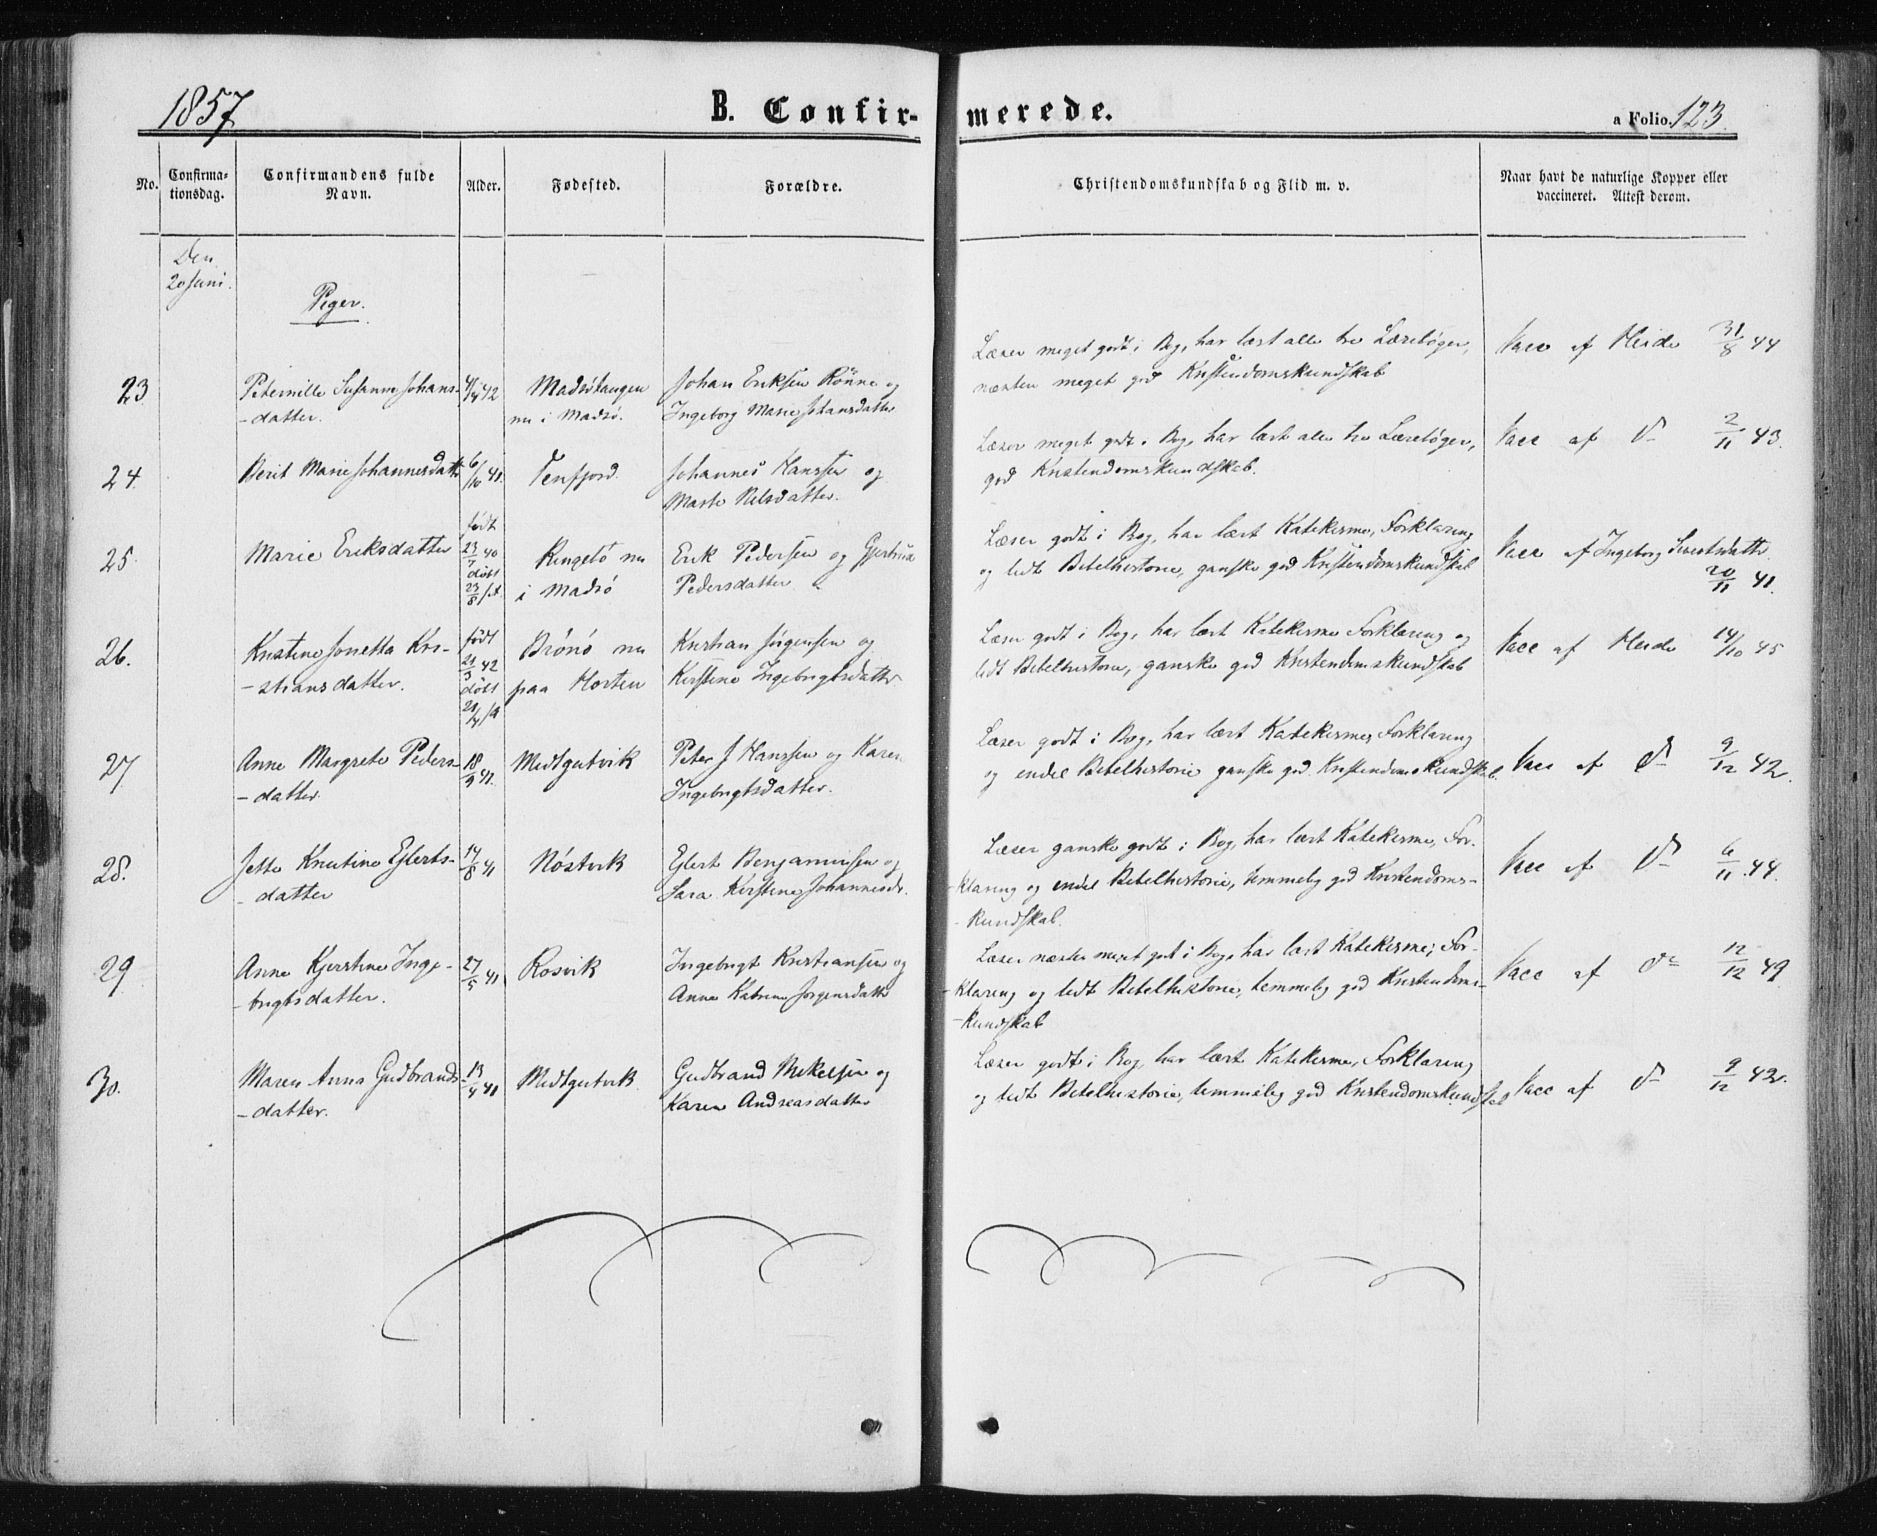 1857
B. Confir-
merede.
a Folio. 123.
No.
Confirma-
tionsdag.
Confirmandens fulde
Navn.
Alder.
Fødested.
Forældre.
Christendomskundskab og Flid m. v.
Naar havt de naturlige Kopper eller
vaccineret. Attest derom.
Den
20 Juni.
Piger.
23
Peternille Susanne Johans-
-datter.
4/4 42
Madsøtangen
nu i Madsø.
Johan Eriksen Rönne og
Ingeborg Marie Johansdatter
Læser meget godt i Bog, har læst alle tre Lærebøger,
næsten meget god Kristendomskundskab
Vacc af Heide 31/8 44
24.
Berit Marie Johannesdatter
6/10 41.
Tenfjord.
Johannes Hanssen og
Marte Nelsdatter.
Læser meget godt i Bog, har læst alle tre Lærebøger,
god Kristendomskundskab.
Vacc af do 2/11 43.
25.
Marie Eriksdatter
født
23/7 40
døbt
23/8 s.A.
Ringesø nu
i Madsø
Erik Pedersen og Gjertrud
Pedersdatter
Læser godt i Bog, har lært Katekisme, Forklaring
og lidt Bibelhistorie, ganske god Kristendomskundskab
Vacc af Ingeborg Sivertsdatter
20/11 41.
26.
Kristine Jonetta Kri-
-stiansdatter.
født
21/3 42
døbt
21/4 s.A
Brønø nu
paa Horten
Kristian Jørgensen og
Kirstine Ingebrigtsdatter
Læser godt i Bog, har lært Katekisme Forklaring og
lidt Bibelhistorie, ganske god Kristendomskundskab
Vacc af Heide 14/10 45
27
Anne Margrete Peders-
-datter.
18/9 41.
Midtgutvik
Peter J Hanssen og Karen
Ingebrigtsdatter.
Læser godt i Bog, har lært Katekisme, Forklaring
og endel Bibelhistorie ganske god Kristendomskundskab.
Vacc af do 9/12 42.
28.
Jette Knutine Eilerts-
-datter
14/8 41
Nøstvik
Eilert Benjaminsen og
Sara Kirstine Johannesdr.
Læser ganske godt i Bog, har lært Katekisme, For-
-klaring og endel Bibelhistorie, temmelig god Kristendoms-
-kundskab.
Vacc af do 6/11 44.
29
Anne Kjerstine Inge-
-brigtsdatter.
27/5 41
Rosvik
Ingebrigt Kristiansen og
Anne Katrine Jørgensdatter
Læser næsten meget godt i Bog, har lært Katekisme, For-
-klaring og lidt Bibelhistorie, temmelig god Kristendoms-
-kundskab
Vacc af do 12/12 49
30.
Maren Anna Gudbrands-
-datter.
13/4 41
Midtgutvik
Gudbrand Mikelsen og
Karen Andreasdatter
Læser godt i Bog, har lært Katekisme, Forklaring
og lidt Bibelhistorie, temmelig god Kristendomskundskab
Vacc af do 9/12 42.